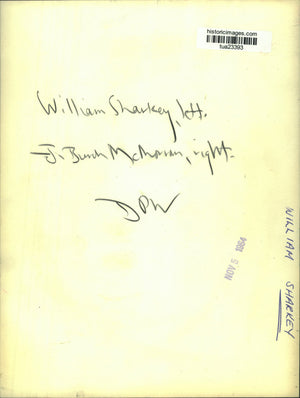 historicimages.com
tua23393
William Sharkey, left.
J. Burch McMoran, right.
DPW
NOV 5 1964
WILLIAM SHARKEY